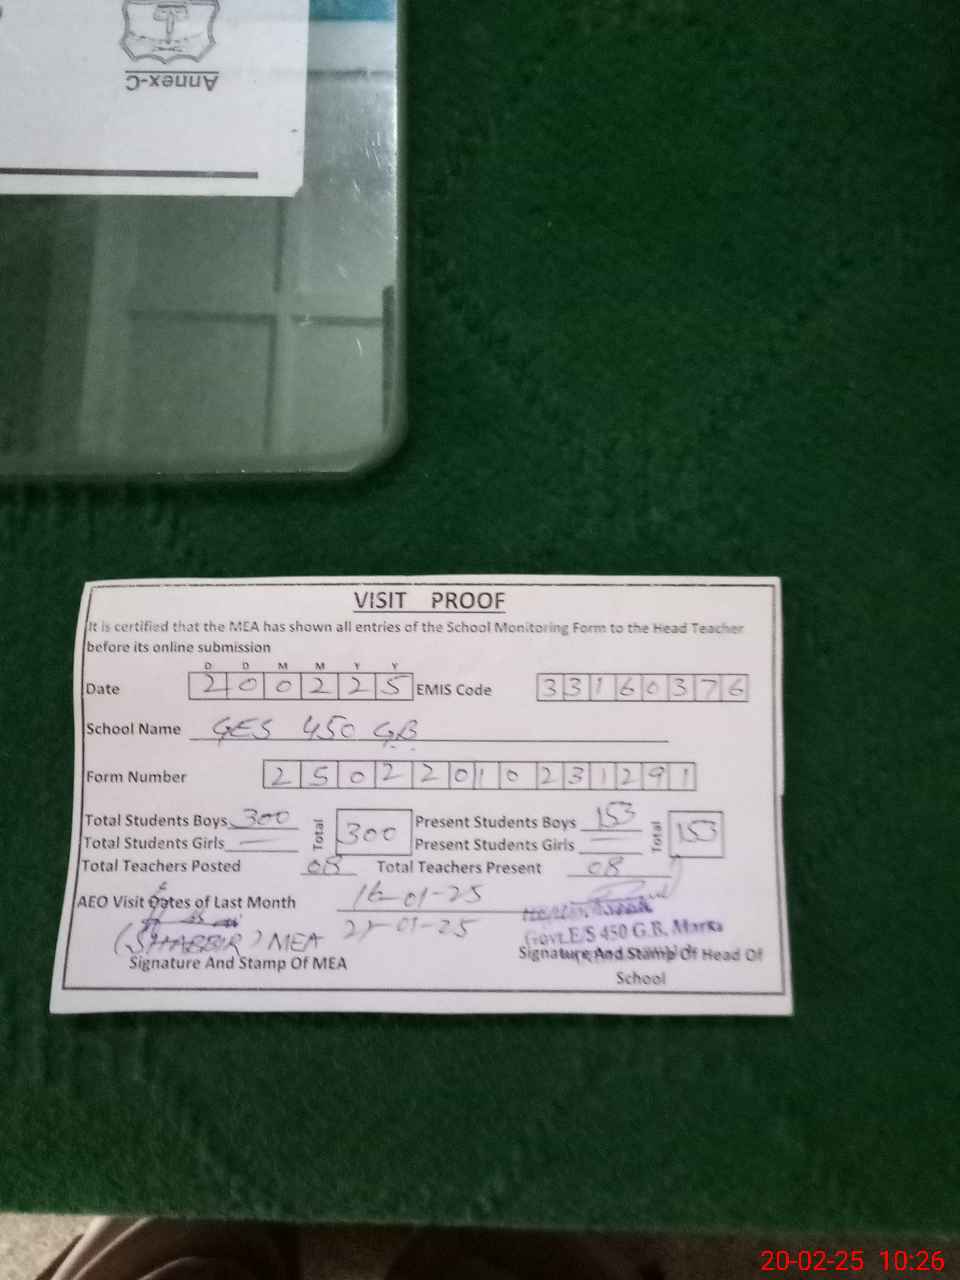 Annex-C
VISIT PROOF
It is certified that the MEA has shown all entries of the School Monitoring Form to the Head Teacher
before its online submission
D D M M Y Y
Date 2 0 0 2 2 5 EMIS Code 3 3 1 6 0 3 7 6
School Name GES 450 GB
Form Number 2 5 0 2 2 0 1 0 2 3 1 2 9 1
Total Students Boys 300 Total 300 Present Students Boys 153 Total 153
Total Students Girls — Present Students Girls —
Total Teachers Posted 08 Total Teachers Present 08
AEO Visit Dates of Last Month 16-01-25
-01-25
(SHABBIR) MEA
Govt.E/S 450 G.B. Marka
Signature And Stamp Of MEA Signature And Stamp Of Head Of
School
20-02-25 10:26